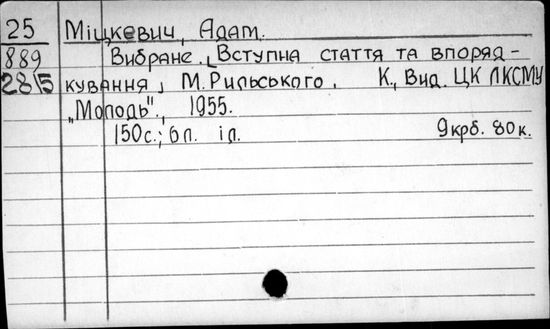 25 Міцкевич, Адам.
889 Вибране. [Вступна стаття та впоряд-
2815 кування] М. Рильського. К., Вид. ЦК ЛКСМУ
„Молодь", 1955.
150 с.; 6 л. іл. 9 крб. 80 к.